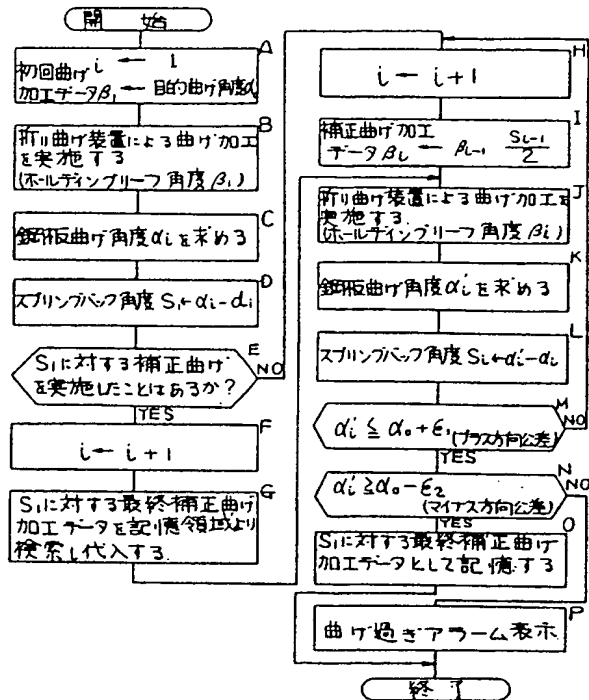 開 始
A
i ← 1
初回曲げ
加工データβ₁ ← 目的曲げ角度α₀
B
折り曲げ装置による曲げ加工
を実施する
(ホールディングリーフ角度β₁)
C
鋼板曲げ角度αiを求める
D
スプリングバック角度 S₁←αi-αi
E
S₁に対する補正曲げ
を実施したことはあるか?
NO
YES
F
i ← i+1
G
S₁に対する最終補正曲げ
加工データを記憶領域より
検索し代入する
H
i ← i+1
I
補正曲げ加工
データβi ← βi-1 Si-1/2
J
折り曲げ装置による曲げ加工を
実施する
(ホールディングリーフ角度βi)
K
鋼板曲げ角度αi'を求める
L
スプリングバック角度Si←αi'-αi
M
αi' ≦ α₀+ε₁(プラス方向公差)
NO
YES
N
αi' ≧ α₀-ε₂
(マイナス方向公差)
NO
YES
O
S₁に対する最終補正曲げ
加工データとして記憶する
P
曲げ過ぎアラーム表示
終 了